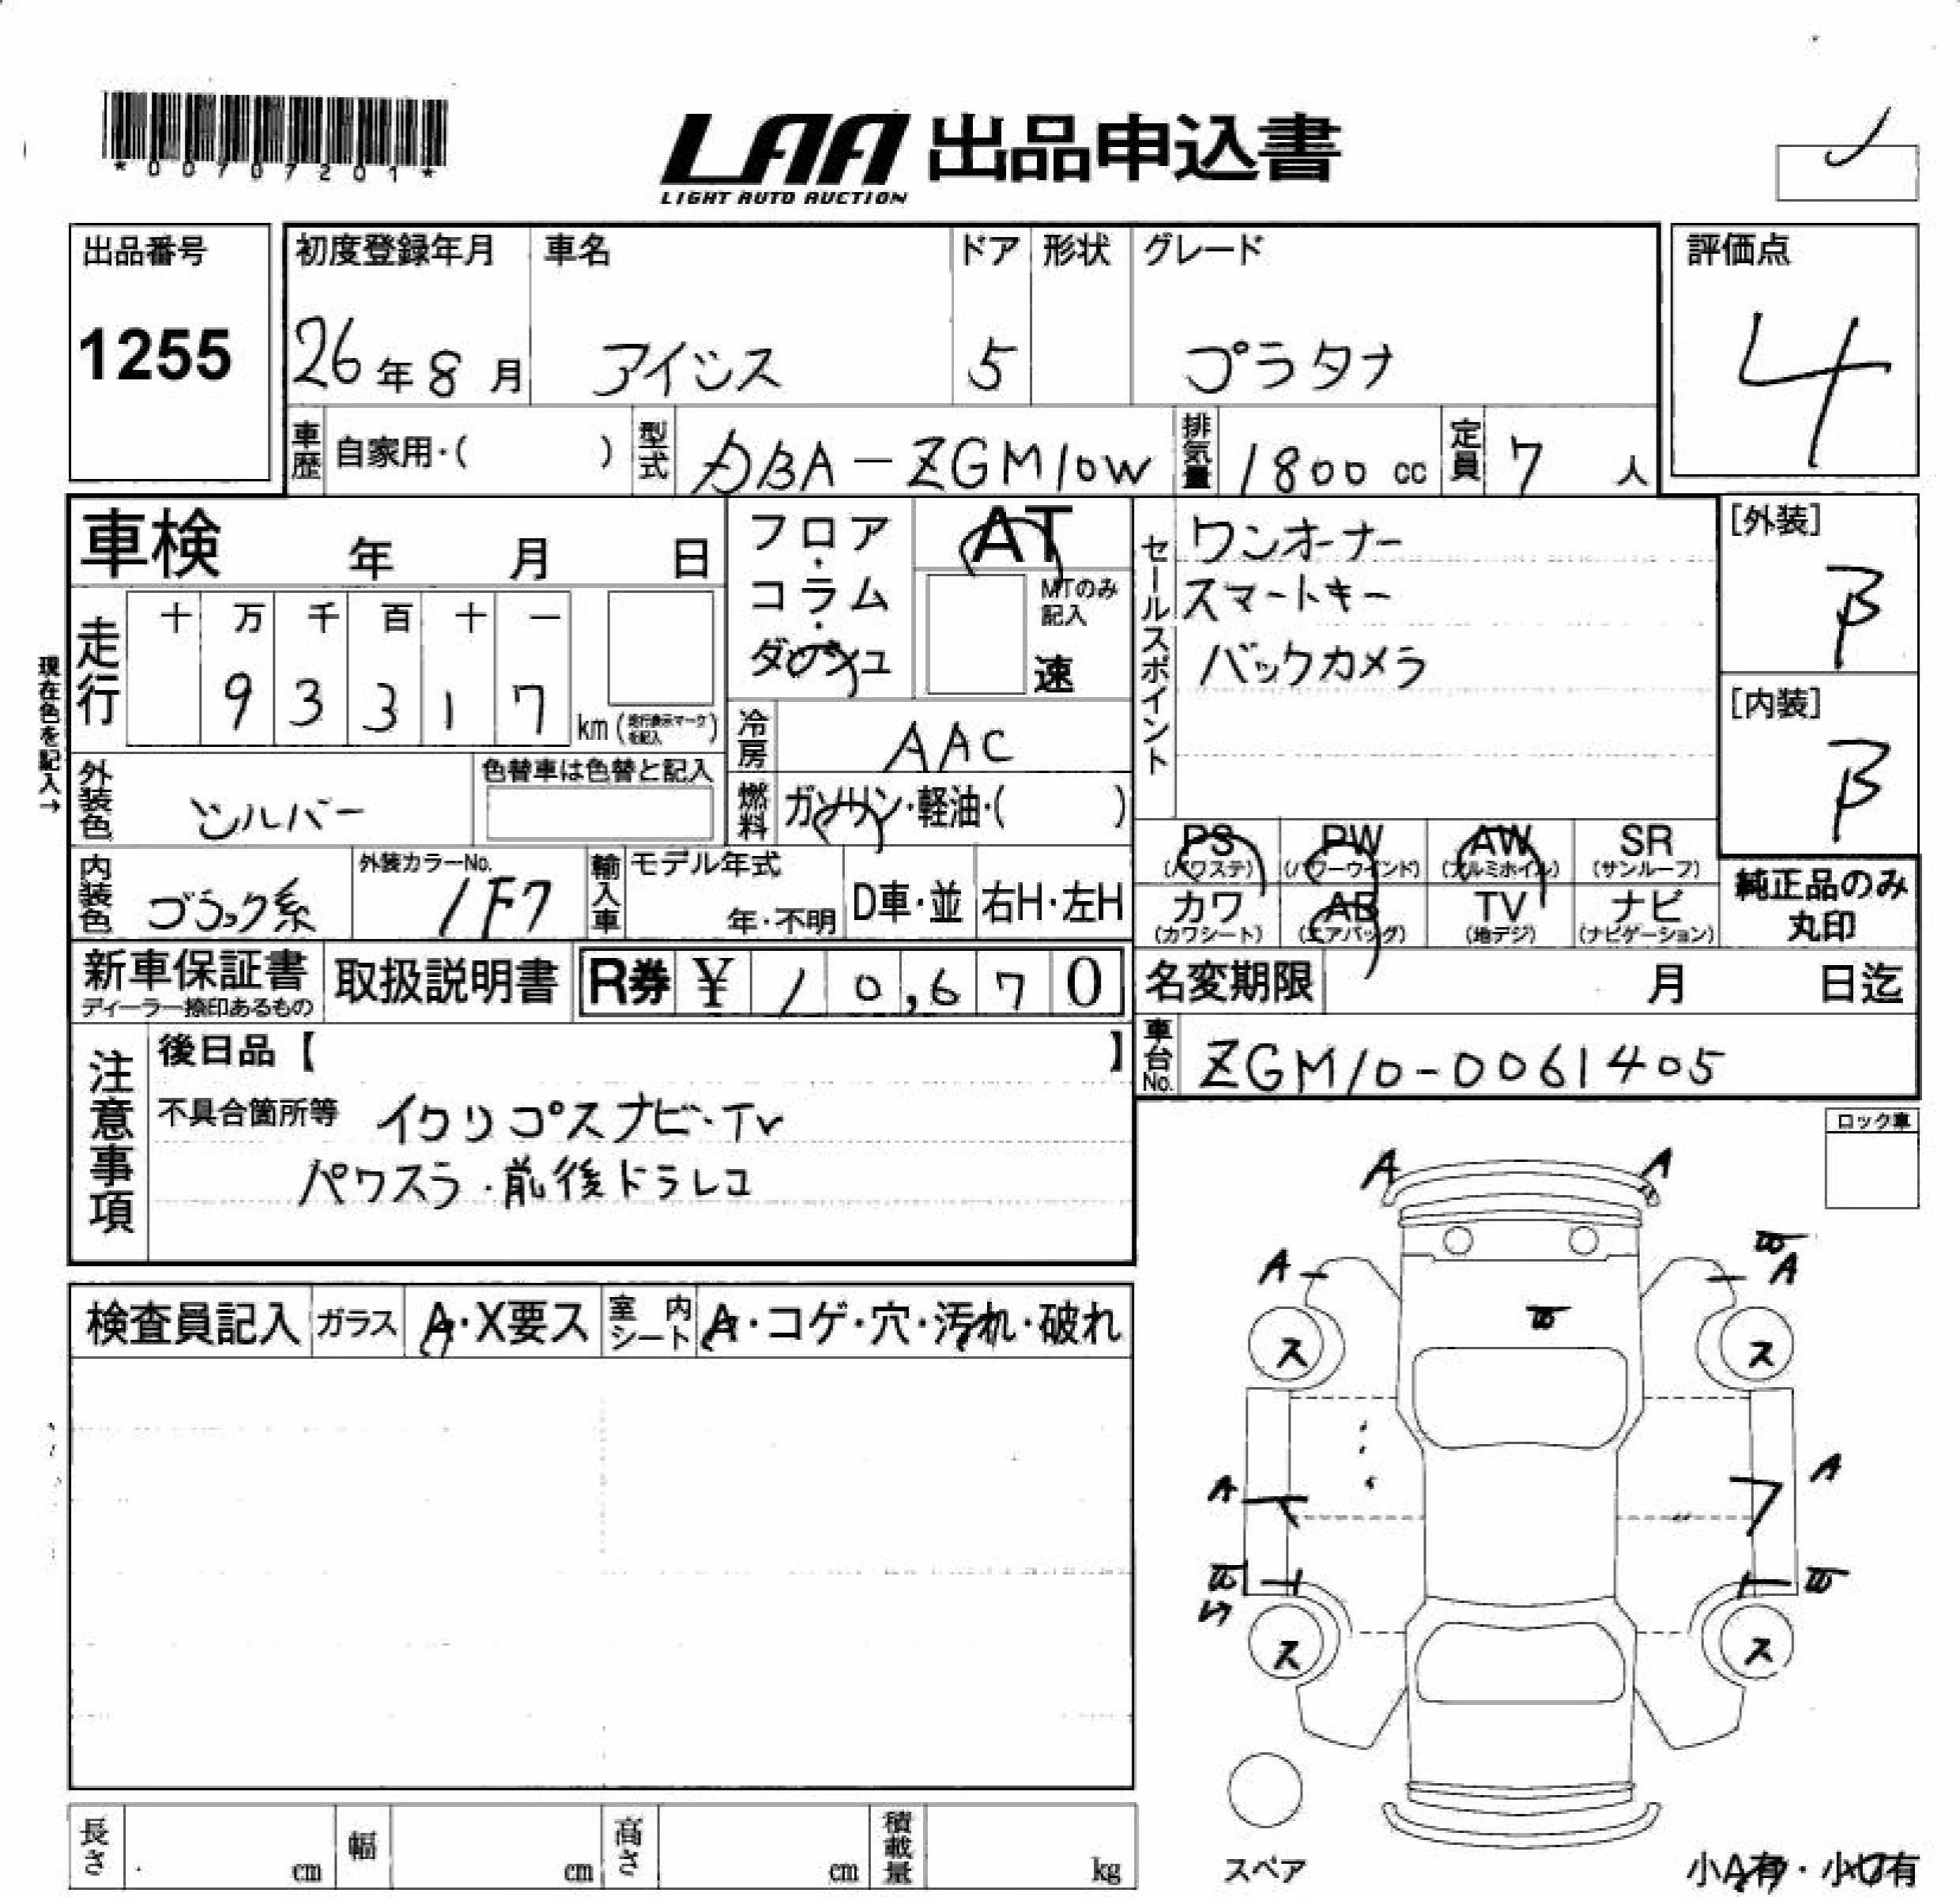 *00707201*
LAA 出品申込書
LIGHT AUTO AUCTION
出品番号
1255
初度登録年月 車名 ドア 形状 グレード
26年8月 アイシス 5 プラタナ
評価点
4
車歴 自家用・( ) 型式 DBA-ZGM10W 排気量 1800cc 定員 7人
車検 年 月 日
フロア・コラム・ダッシュ
AT
MTのみ記入
速
セールスポイント
ワンオーナー
スマートキー
バックカメラ
[外装]
B
[内装]
B
現在色を記入→
走行 十 万 千 百 十 一
93317 km (走行表示マークを記入)
冷房 AAC
外装色 シルバー 色替車は色替と記入
燃料 ガソリン・軽油・( )
内装色 ブラック系 外装カラーNo. 1F7
輸入車 モデル年式 年・不明 D車・並 右H・左H
PS (パワステ) PW (パワーウインド) AW (アルミホイル) SR (サンルーフ)
カワ (カワシート) AB (エアバッグ) TV (地デジ) ナビ (ナビゲーション)
純正品のみ丸印
新車保証書 ディーラー捺印あるもの 取扱説明書 R券 ¥10,670
名変期限 月 日迄
車台No. ZGM10-0061405
注意事項
後日品【 】
不具合箇所等 イクリプスナビ・TV
パワスラ・前後ドラレコ
ロック車
検査員記入 ガラス A・X要ス 室内シート A・コゲ・穴・汚れ・破れ
A A
A A
ス ス
A A
ス ス
スペア
小A有・小U有
長さ cm 幅 cm 高さ cm 積載量 kg